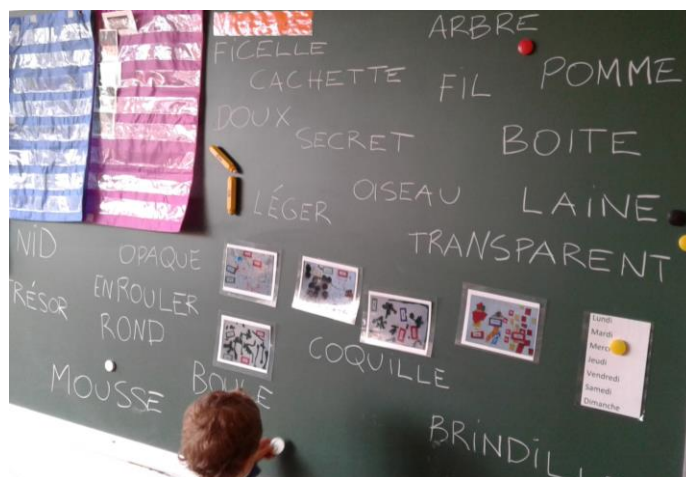 ARBRE
FICELLE
CACHETTE
FIL
POMME
DOUX
SECRET
BOITE
LÉGER
OISEAU
LAINE
NID
OPAQUE
TRANSPARENT
TRÉSOR
ENROULER
ROND
COQUILLE
MOUSSE
BOULE
Lundi
Mardi
Merc
Jeudi
Vendredi
Samedi
Dimanche
BRINDILL